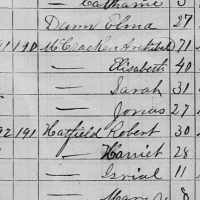 Catharine 3
Dunn Elma 27
91 190 McCracken Archibd 71
— Elisabeth 40
— Sarah 31
— Jonas 27
92 191 Hatfield Robert 30
— Harriet 28
— Isrial 11
— Mary 8